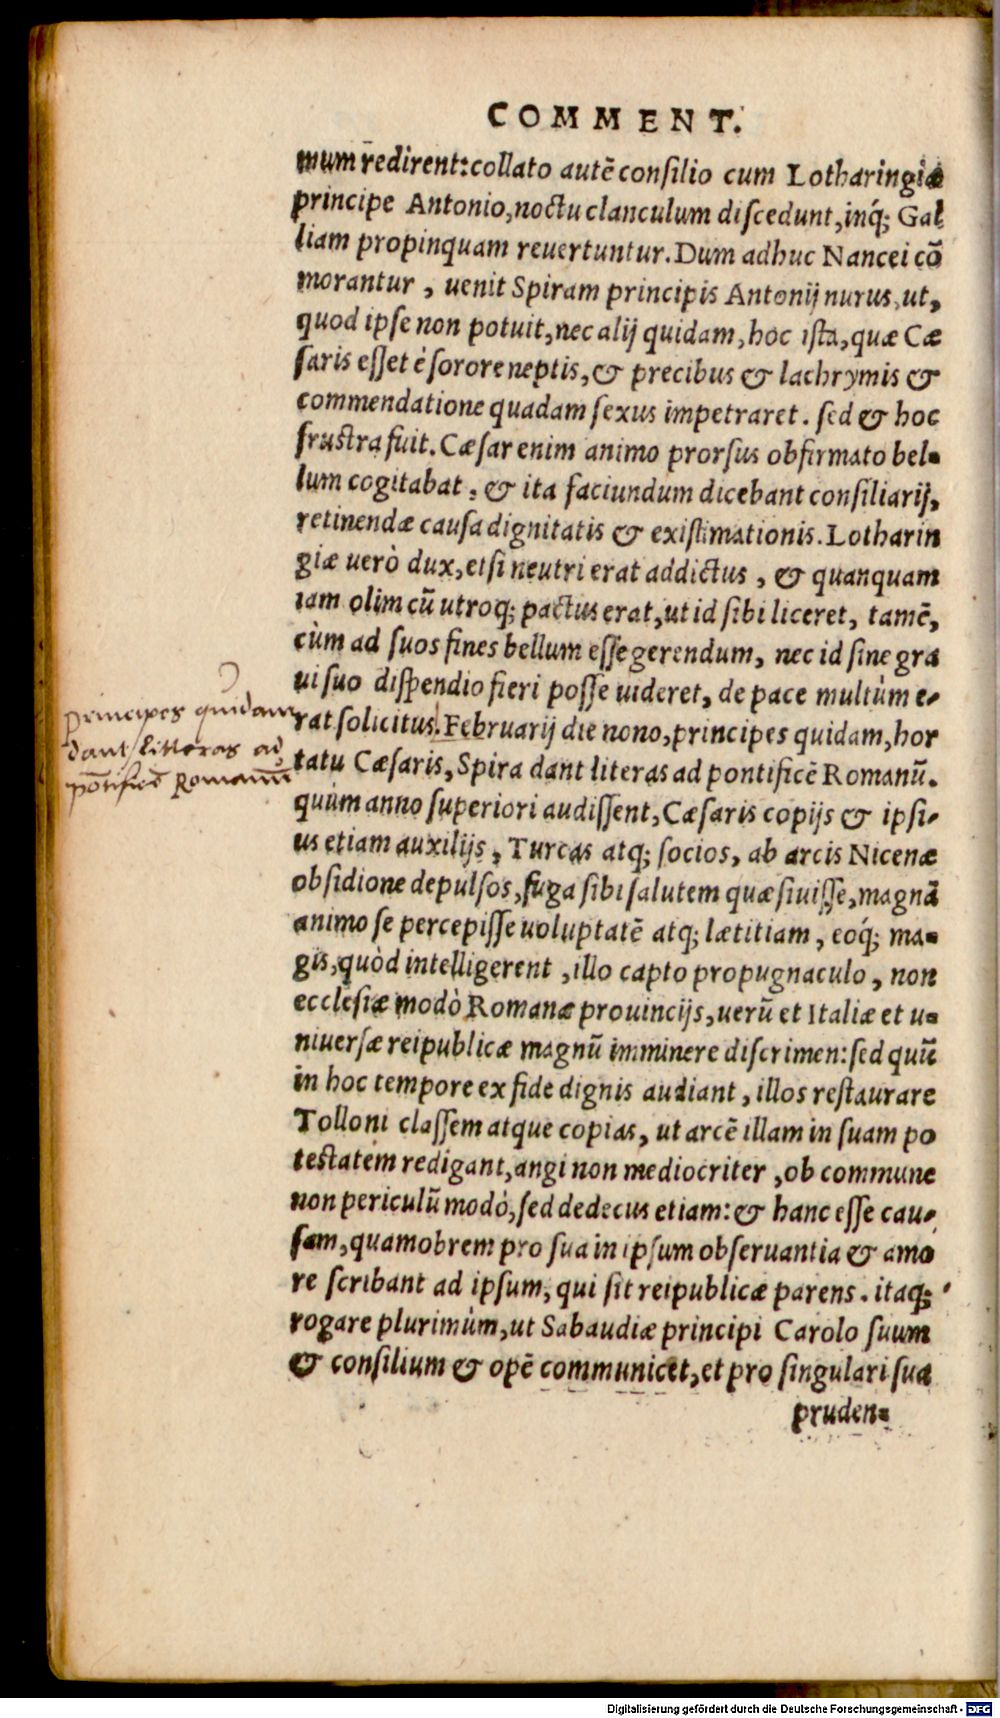 COMMENT.
mum redirent: collato autē consilio cum Lotharingiæ
principe Antonio, noctu clanculum discedunt, inq́; Gal
liam propinquam reuertuntur. Dum adhuc Nancei cō
morantur, uenit Spiram principis Antonij nurus, ut,
quod ipse non potuit, nec alij quidam, hoc ista, quæ Cæ
saris esset è sorore neptis, & precibus & lachrymis &
commendatione quadam sexus impetraret. sed & hoc
frustra fuit. Cæsar enim animo prorsus obfirmato bel-
lum cogitabat, & ita faciundum dicebant consiliarij,
retinendæ causa dignitatis & existimationis. Lotharin
giæ uerò dux, etsi neutri erat addictus, & quanquam
iam olim cū utroq; pactus erat, ut id sibi liceret, tamē,
cùm ad suos fines bellum esse gerendum, nec id sine gra
ui suo dispendio fieri posse uideret, de pace multùm e-
rat solicitus. Februarij die nono, principes quidam, hor
tatu Cæsaris, Spira dant literas ad pontificē Romanū.
quùm anno superiori audissent, Cæsaris copijs & ipsi-
us etiam auxilijs, Turcas atq; socios, ab arcis Nicenæ
obsidione depulsos, fuga sibi salutem quæsiuisse, magnā
animo se percepisse uoluptatē atq; lætitiam, eoq́; ma-
gis, quòd intelligerent, illo capto propugnaculo, non
ecclesiæ modò Romanæ prouincijs, uerū et Italiæ et u-
niuersæ reipublicæ magnū imminere discrimen: sed quū
in hoc tempore ex fide dignis audiant, illos restaurare
Tolloni classem atque copias, ut arcē illam in suam po
testatem redigant, angi non mediocriter, ob commune
non periculū modò, sed dedecus etiam: & hanc esse cau-
sam, quamobrem pro sua in ipsum obseruantia & amo
re scribant ad ipsum, qui sit reipublicæ parens. itaq;
rogare plurimùm, ut Sabaudiæ principi Carolo suum
& consilium & opē communicet, et pro singulari sua
pruden-
principes quidam
dant litteras ad
pōtificē Romanū
Digitalisierung gefördert durch die Deutsche Forschungsgemeinschaft - DFG